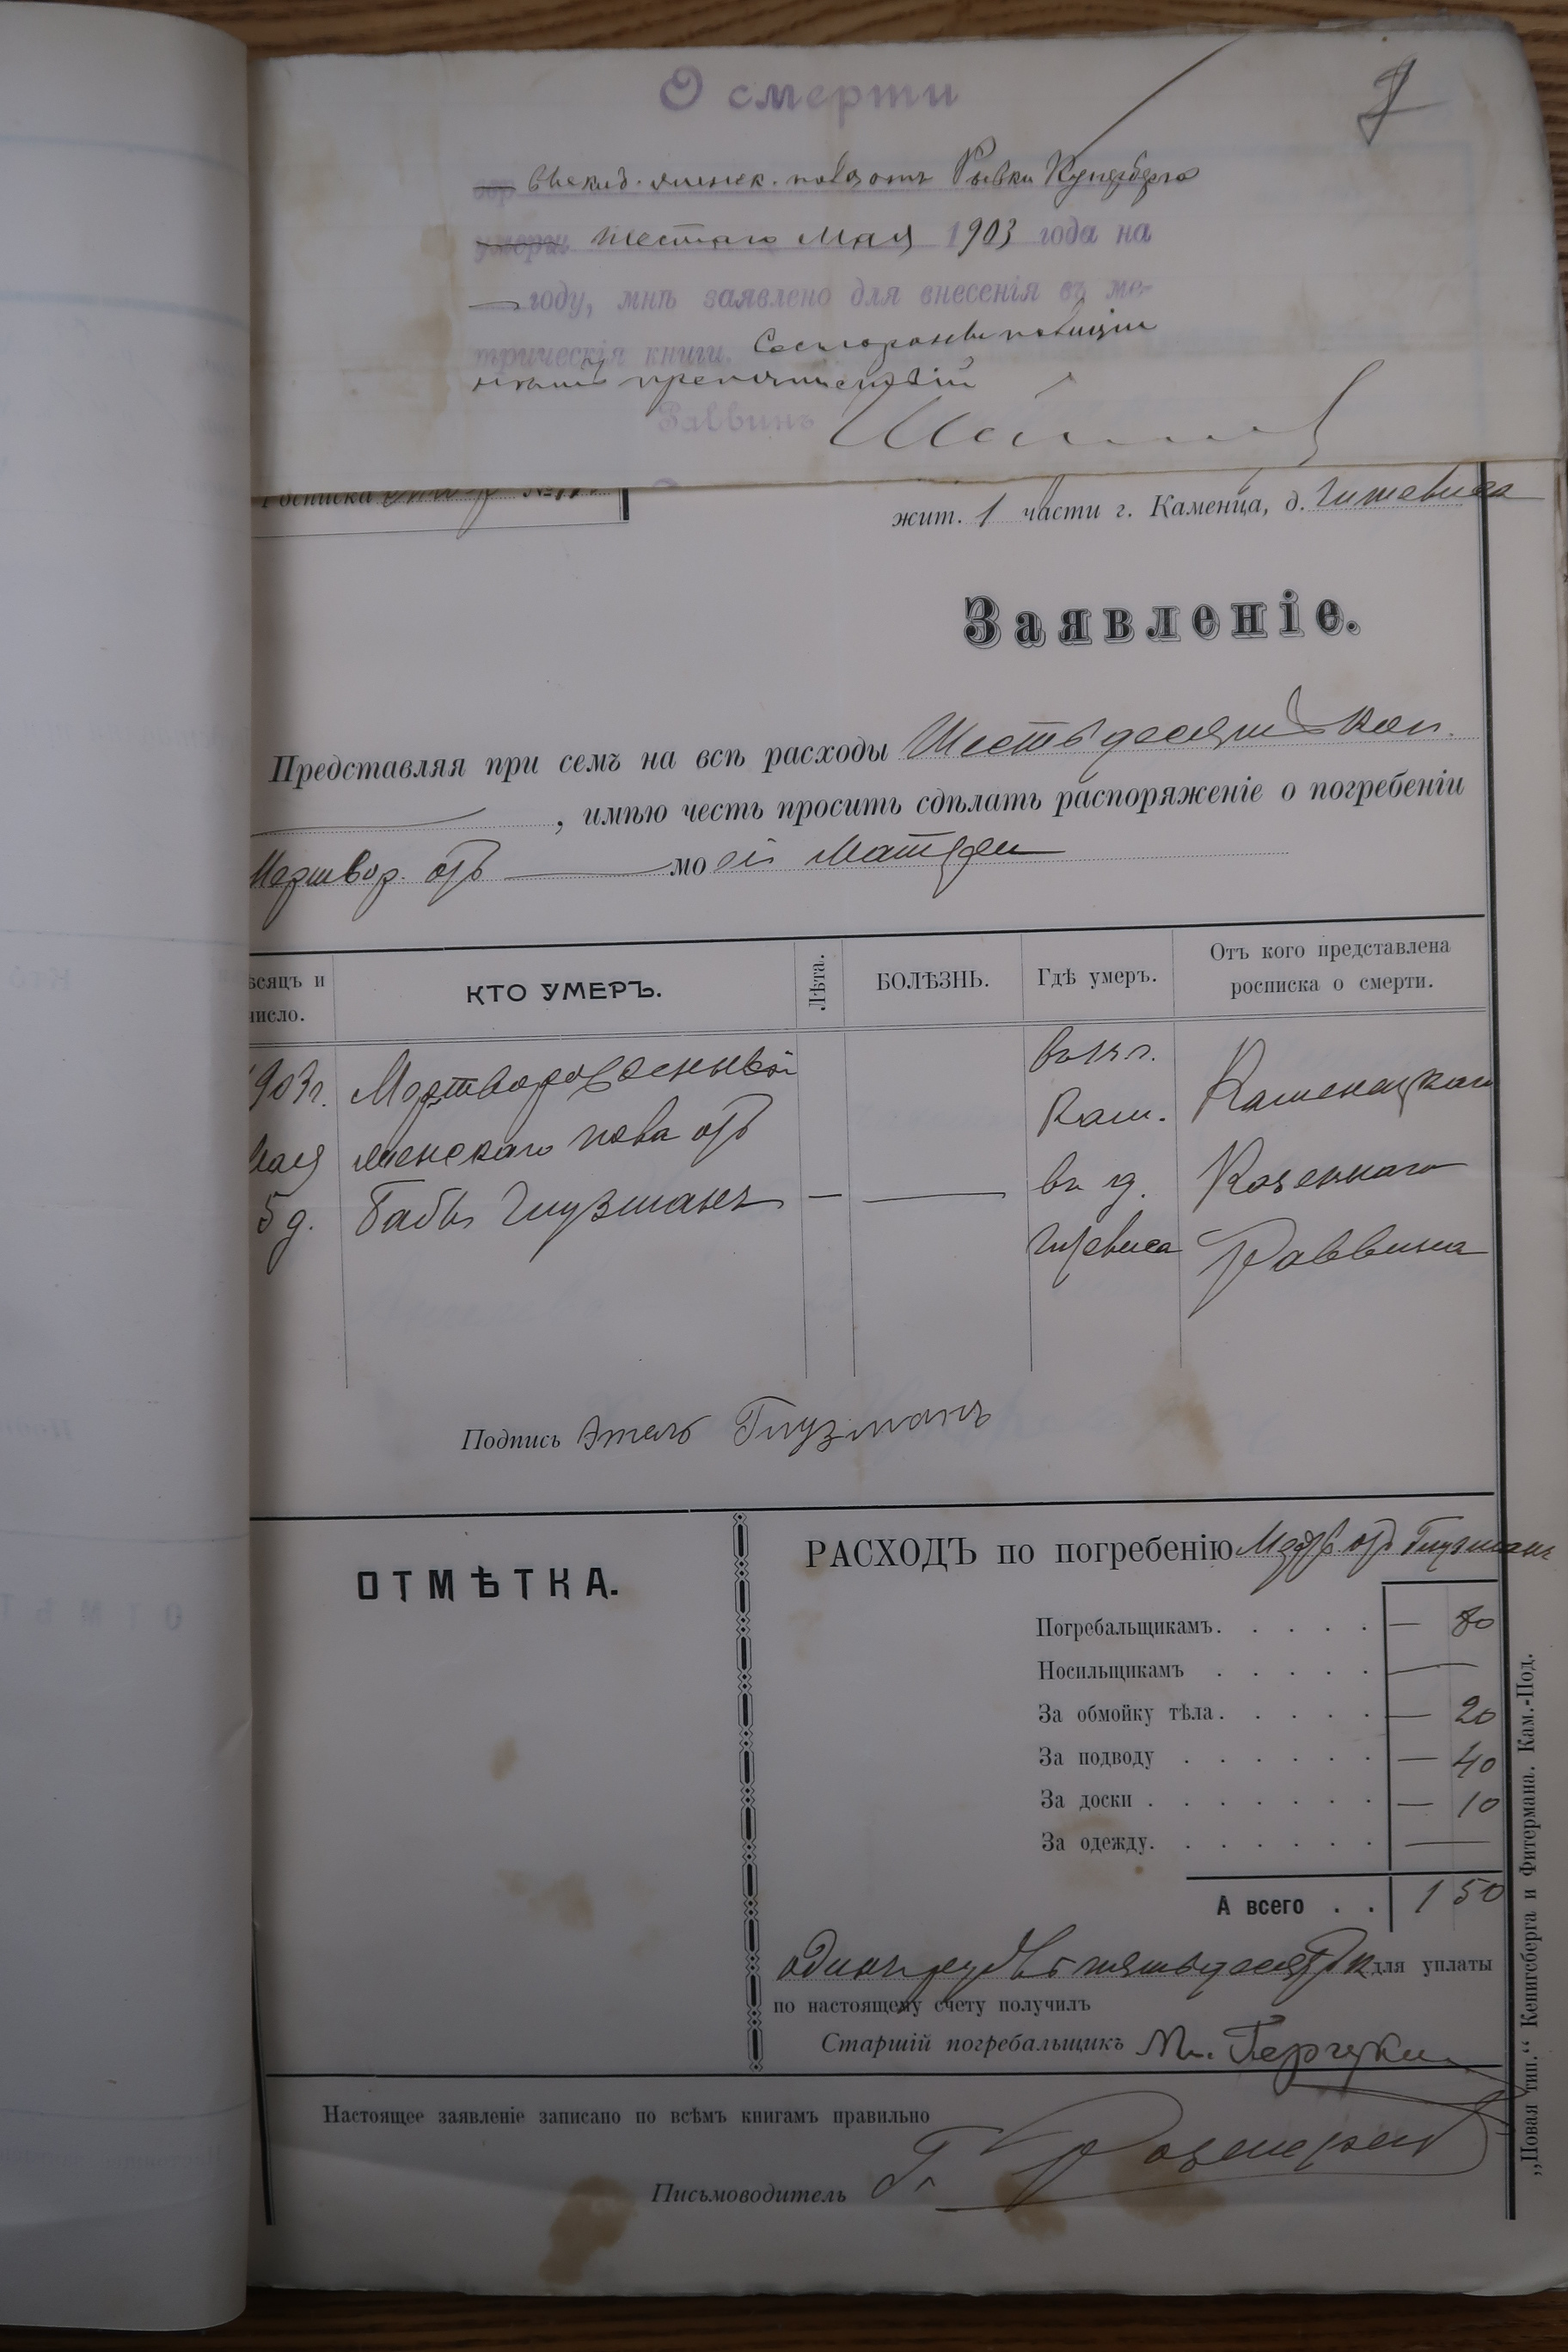 О смерти
выкид. женск. пола отъ Рывки Куперберга
умерш Шестаго Мая 1903 года на
году, мнѣ заявлено для внесенія въ ме-
трическія книги. Со стороны полиціи
препятствій
Раввинъ
Росписка
жит. 1 части г. Каменца, д.
Заявленіе.
Представляя при семъ на всѣ расходы Шестьдесятъ коп.
, имѣю честь просить сдѣлать распоряженіе о погребеніи
Мертвор. отъ мо ей
ѣсяцъ и число. КТО УМЕРЪ. Лѣта. БОЛѢЗНЬ. Гдѣ умеръ. Отъ кого представлена росписка о смерти.
903г. Мертворожденный Кам. Каменецкаго
мая женскаго пола отъ въ д. Казеннаго
5 д. Бабы Глузманъ — — Раввина
Подпись Этель Глузманъ
ОТМѢТКА.
РАСХОДЪ по погребенію Мертв. отъ Глузманъ
Погребальщикамъ. . . . . — 80
Носильщикамъ . . . . . —
За обмойку тѣла. . . . . — 20
За подводу . . . . . . — 40
За доски . . . . . . . — 10
За одежду. . . . . . . —
А всего . . 1 50
одинъ рубль пятьдесятъ к для уплаты
по настоящему счету получилъ
Старшій погребальщикъ М.
Настоящее заявленіе записано по всѣмъ книгамъ правильно
Письмоводитель Г.
„Новая тип.“ Кенигсберга и Фитермана. Кам.-Под.